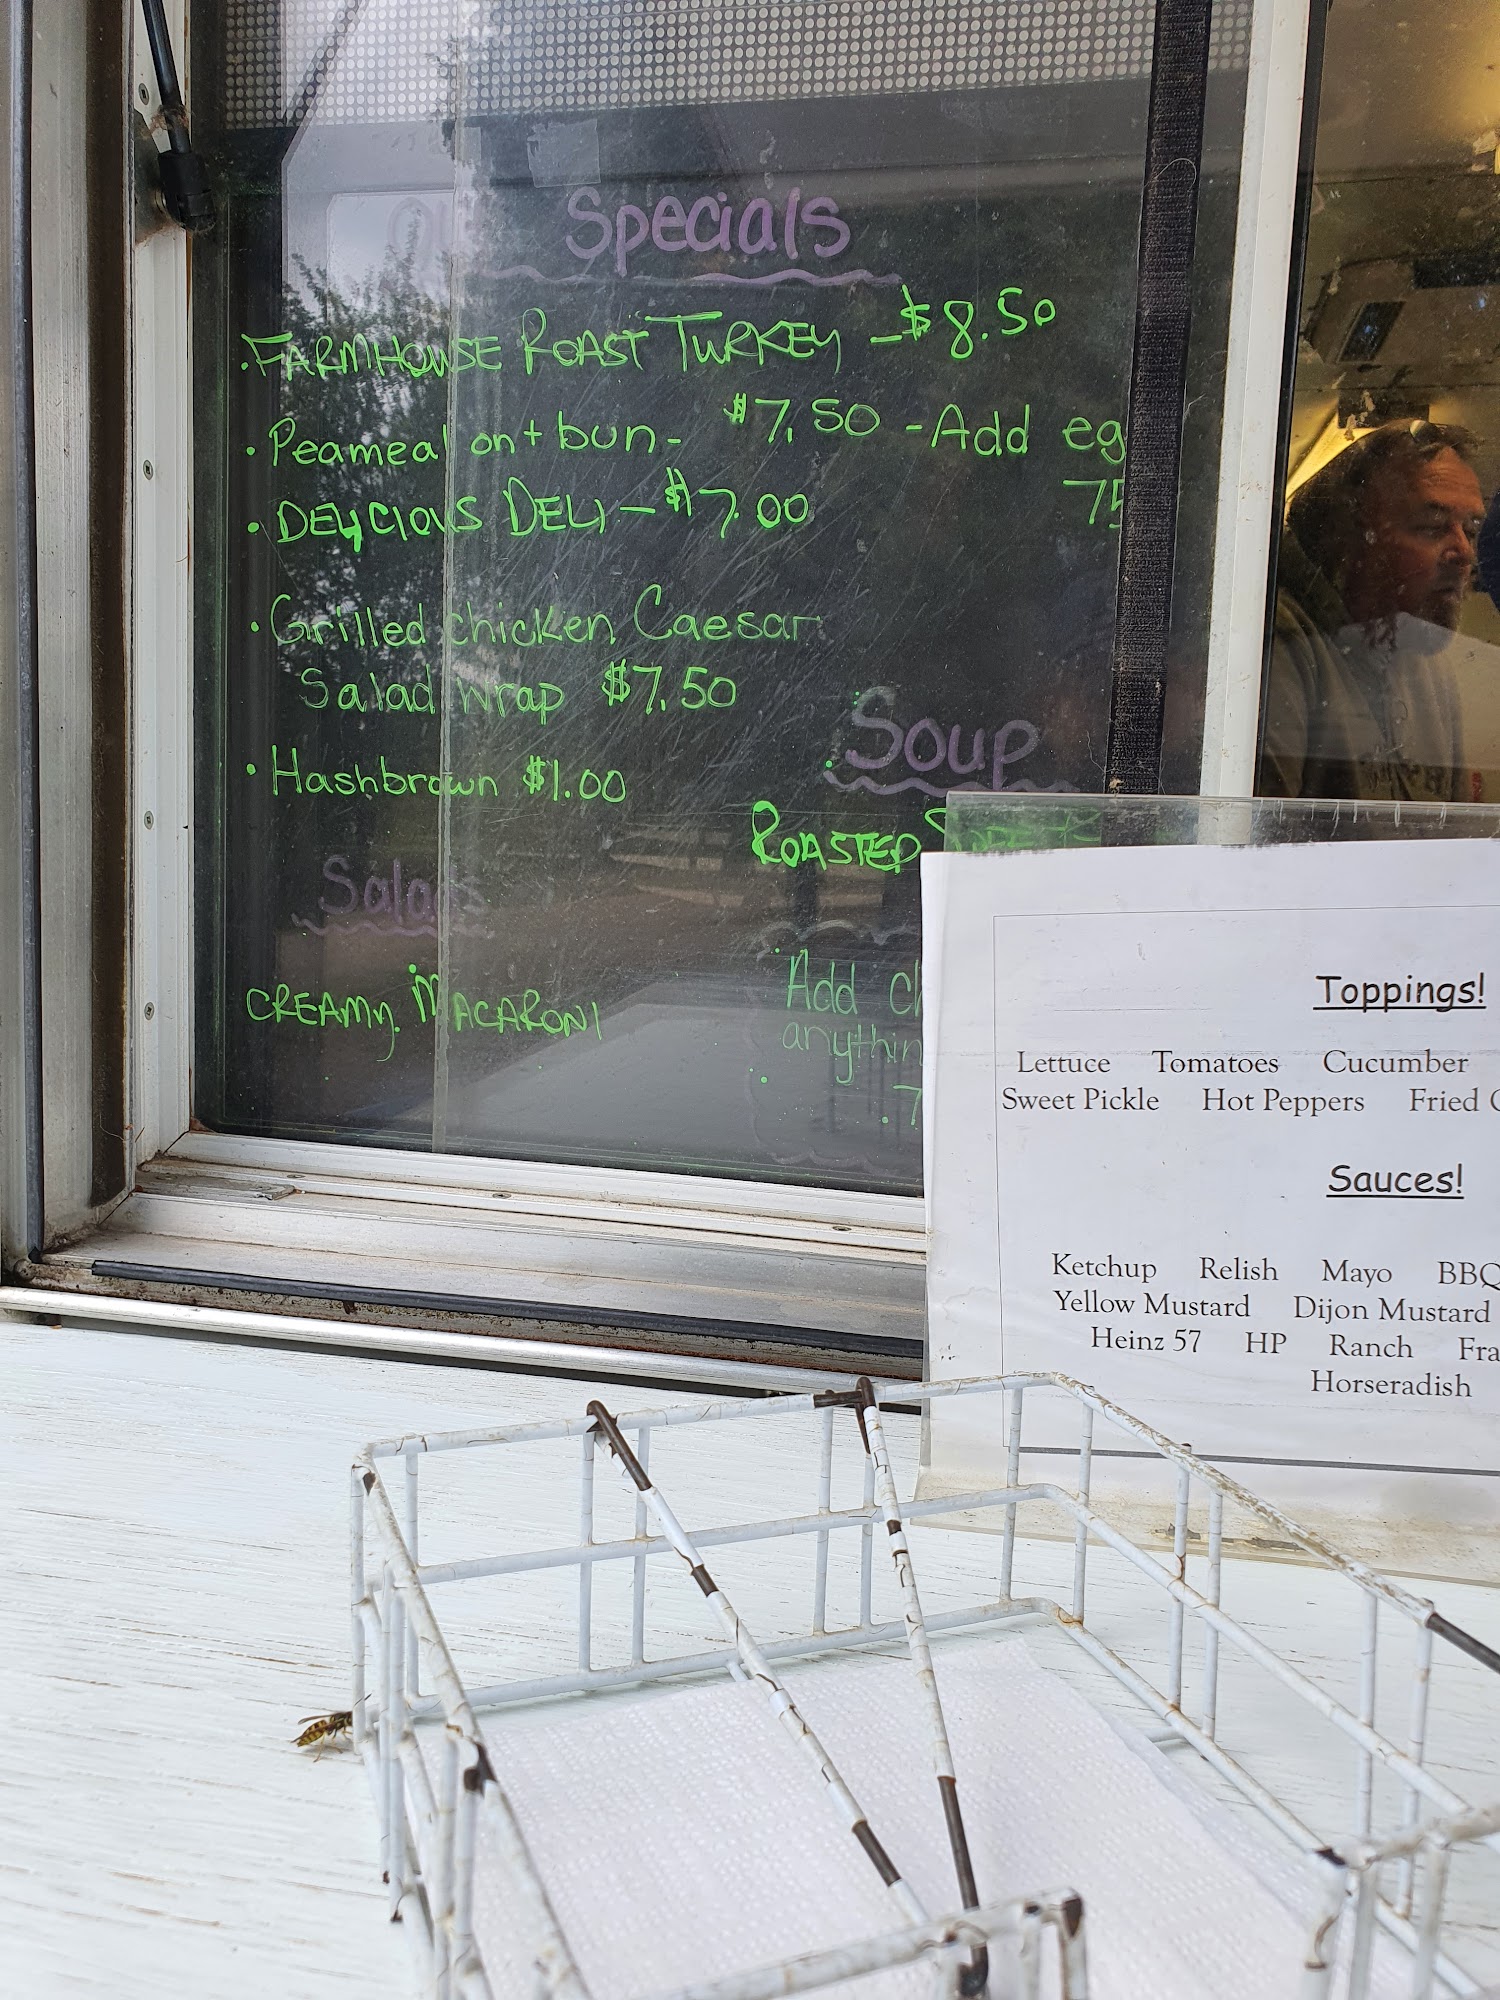 Our Specials
• FARMHOUSE ROAST TURKEY - $8.50
• Peameal on + bun - $7.50 - Add eg
75
• DELICIOUS DELI - $7.00
• Grilled chicken Caesar
Salad wrap $7.50
• Hashbrown $1.00
Soup
ROASTED
Salads
CREAMY MACARONI
Add ch
anythin
.7
Toppings!
Lettuce Tomatoes Cucumber
Sweet Pickle Hot Peppers Fried
Sauces!
Ketchup Relish Mayo BBQ
Yellow Mustard Dijon Mustard
Heinz 57 HP Ranch Fra
Horseradish